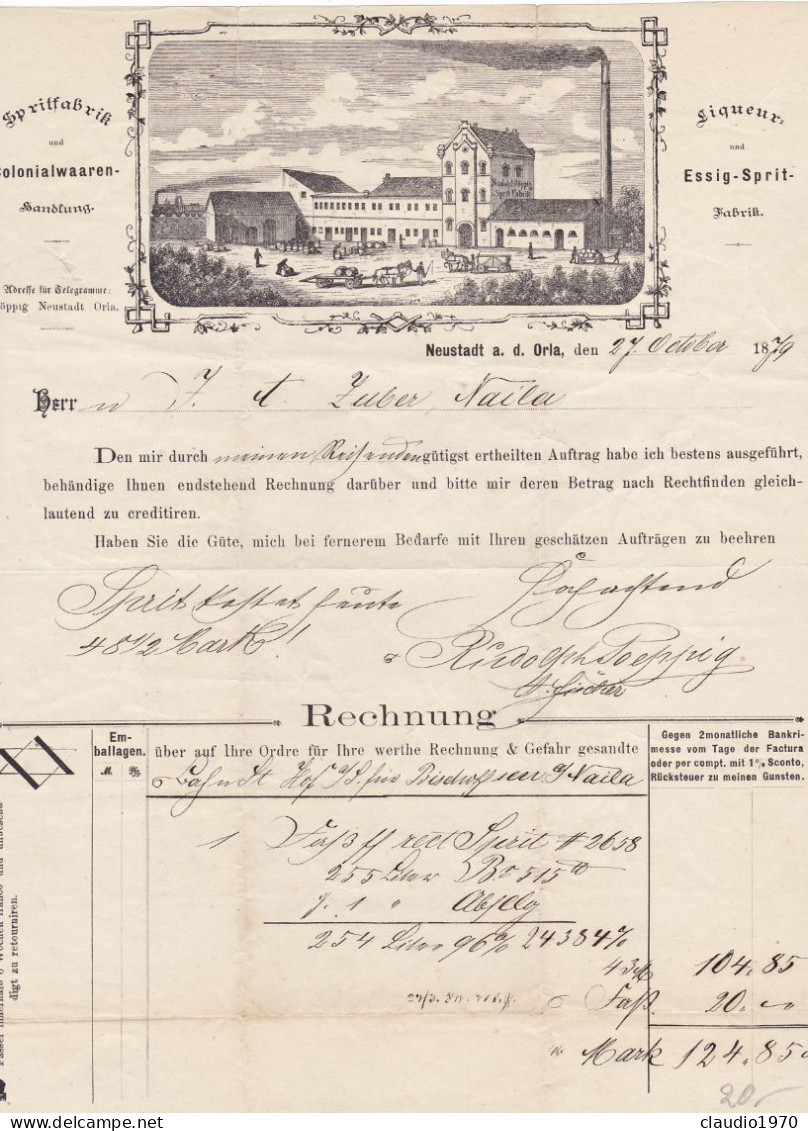 Spritfabrik
und
Colonialwaaren-
Handlung.
Adresse für Telegramme:
öppig Neustadt Orla.
Rudolph Pöppig
Sprit Fabrik
Liqueur-
und
Essig-Sprit-
Fabrik.
Neustadt a. d. Orla, den 27. October 1879
Herrn J. A. Zuber, Naila
Den mir durch meinen Reisenden gütigst ertheilten Auftrag habe ich bestens ausgeführt,
behändige Ihnen endstehend Rechnung darüber und bitte mir deren Betrag nach Rechtfinden gleich-
lautend zu creditiren.
Haben Sie die Güte, mich bei fernerem Bedarfe mit Ihren geschätzen Aufträgen zu beehren
Sprit kostet heute
48 1/2 Mark!
Hochachtend
Rudolph Poeppig
Rechnung
Em-
ballagen.
M. Pf.
über auf Ihre Ordre für Ihre werthe Rechnung & Gefahr gesandte
Gegen 2monatliche Bankri-
messe vom Tage der Factura
oder per compt. mit 1% Sconto,
Rücksteuer zu meinen Gunsten.
Bahn St Hof a/S. für Naila
1 Faß ff rect Spirit # 2658
255 Liter Br 515
1 "
254 Liter 96% 24384%
43 M 104.85
Faß 20.
Mark 124.85
20.-
Fässer innerhalb 6 Wochen franco und unbeschä-
digt zu retourniren.
claudio1970